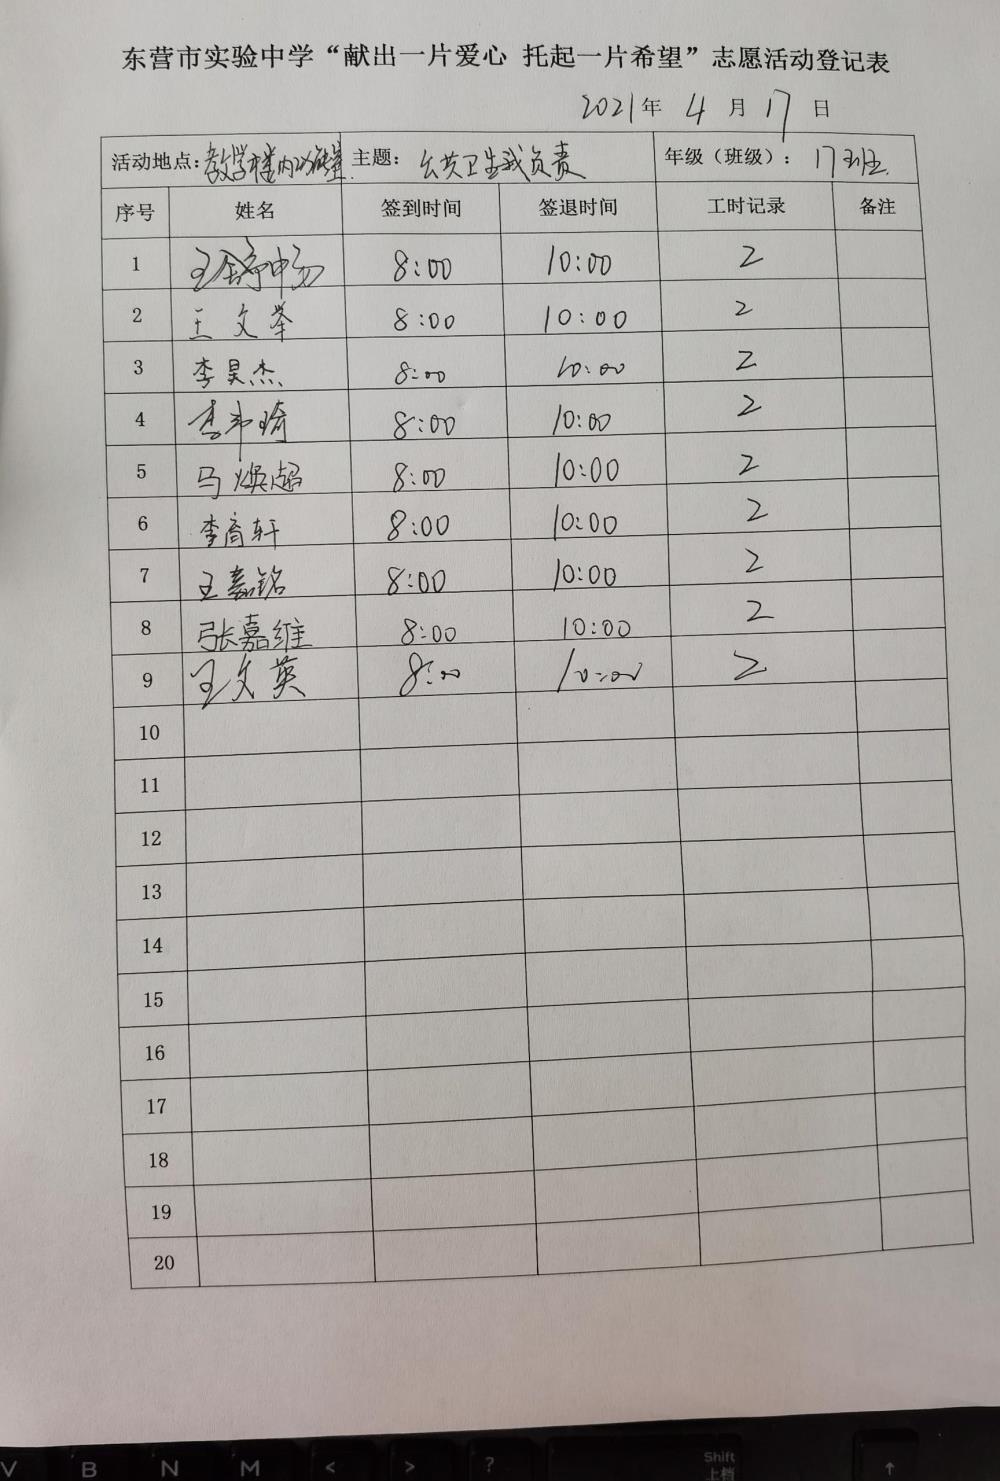 东营市实验中学“献出一片爱心 托起一片希望”志愿活动登记表
2021年 4 月 17 日
活动地点：教学楼内 主题：公共卫生我负责 年级（班级）：17班
序号 姓名 签到时间 签退时间 工时记录 备注
1 王舒畅 8:00 10:00 2
2 王文举 8:00 10:00 2
3 李昊杰 8:00 10:00 2
4 李 琦 8:00 10:00 2
5 马焕超 8:00 10:00 2
6 李育轩 8:00 10:00 2
7 王嘉铭 8:00 10:00 2
8 张嘉维 8:00 10:00 2
9 王文英 8:00 10:00 2
10
11
12
13
14
15
16
17
18
19
20
V B N M < > ? Shift ↑
上档